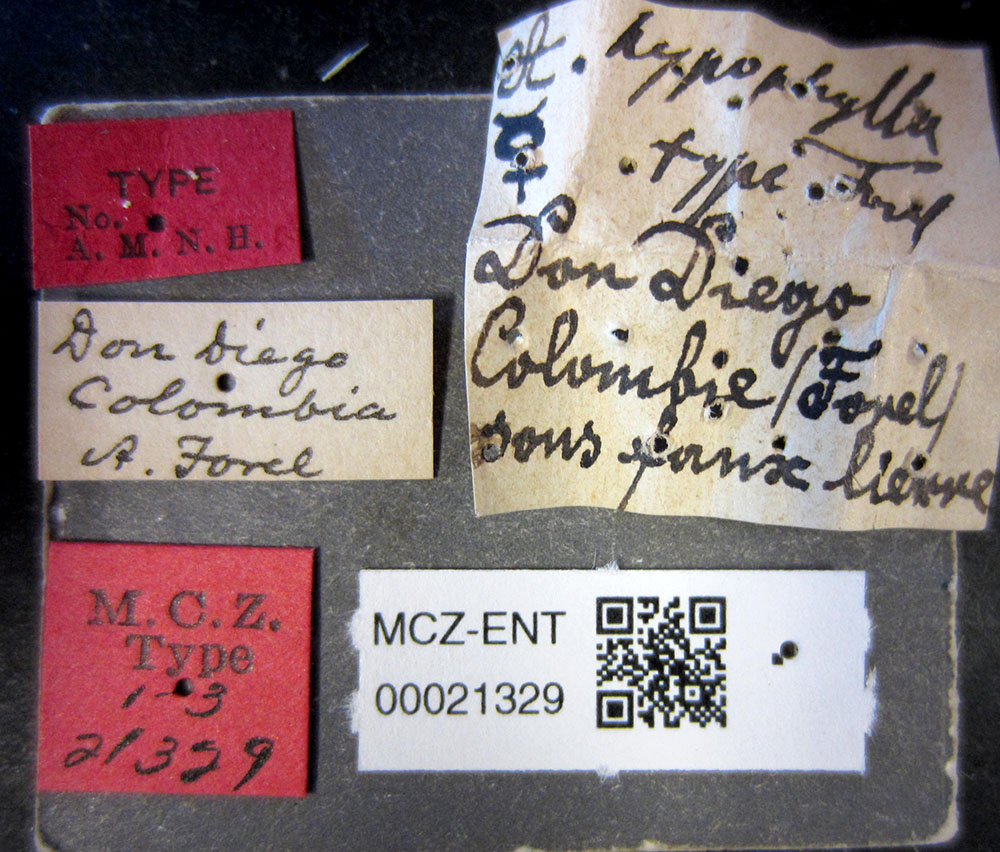 TYPE
No.
A. M. N. H.
Don Diego
Colombia
A. Forel
M. C. Z.
Type
1-3
21329
A. hypophylla
☿ type Forel
♀
Don Diego
Colombie /Forel/
sous faux lierre
MCZ-ENT
00021329